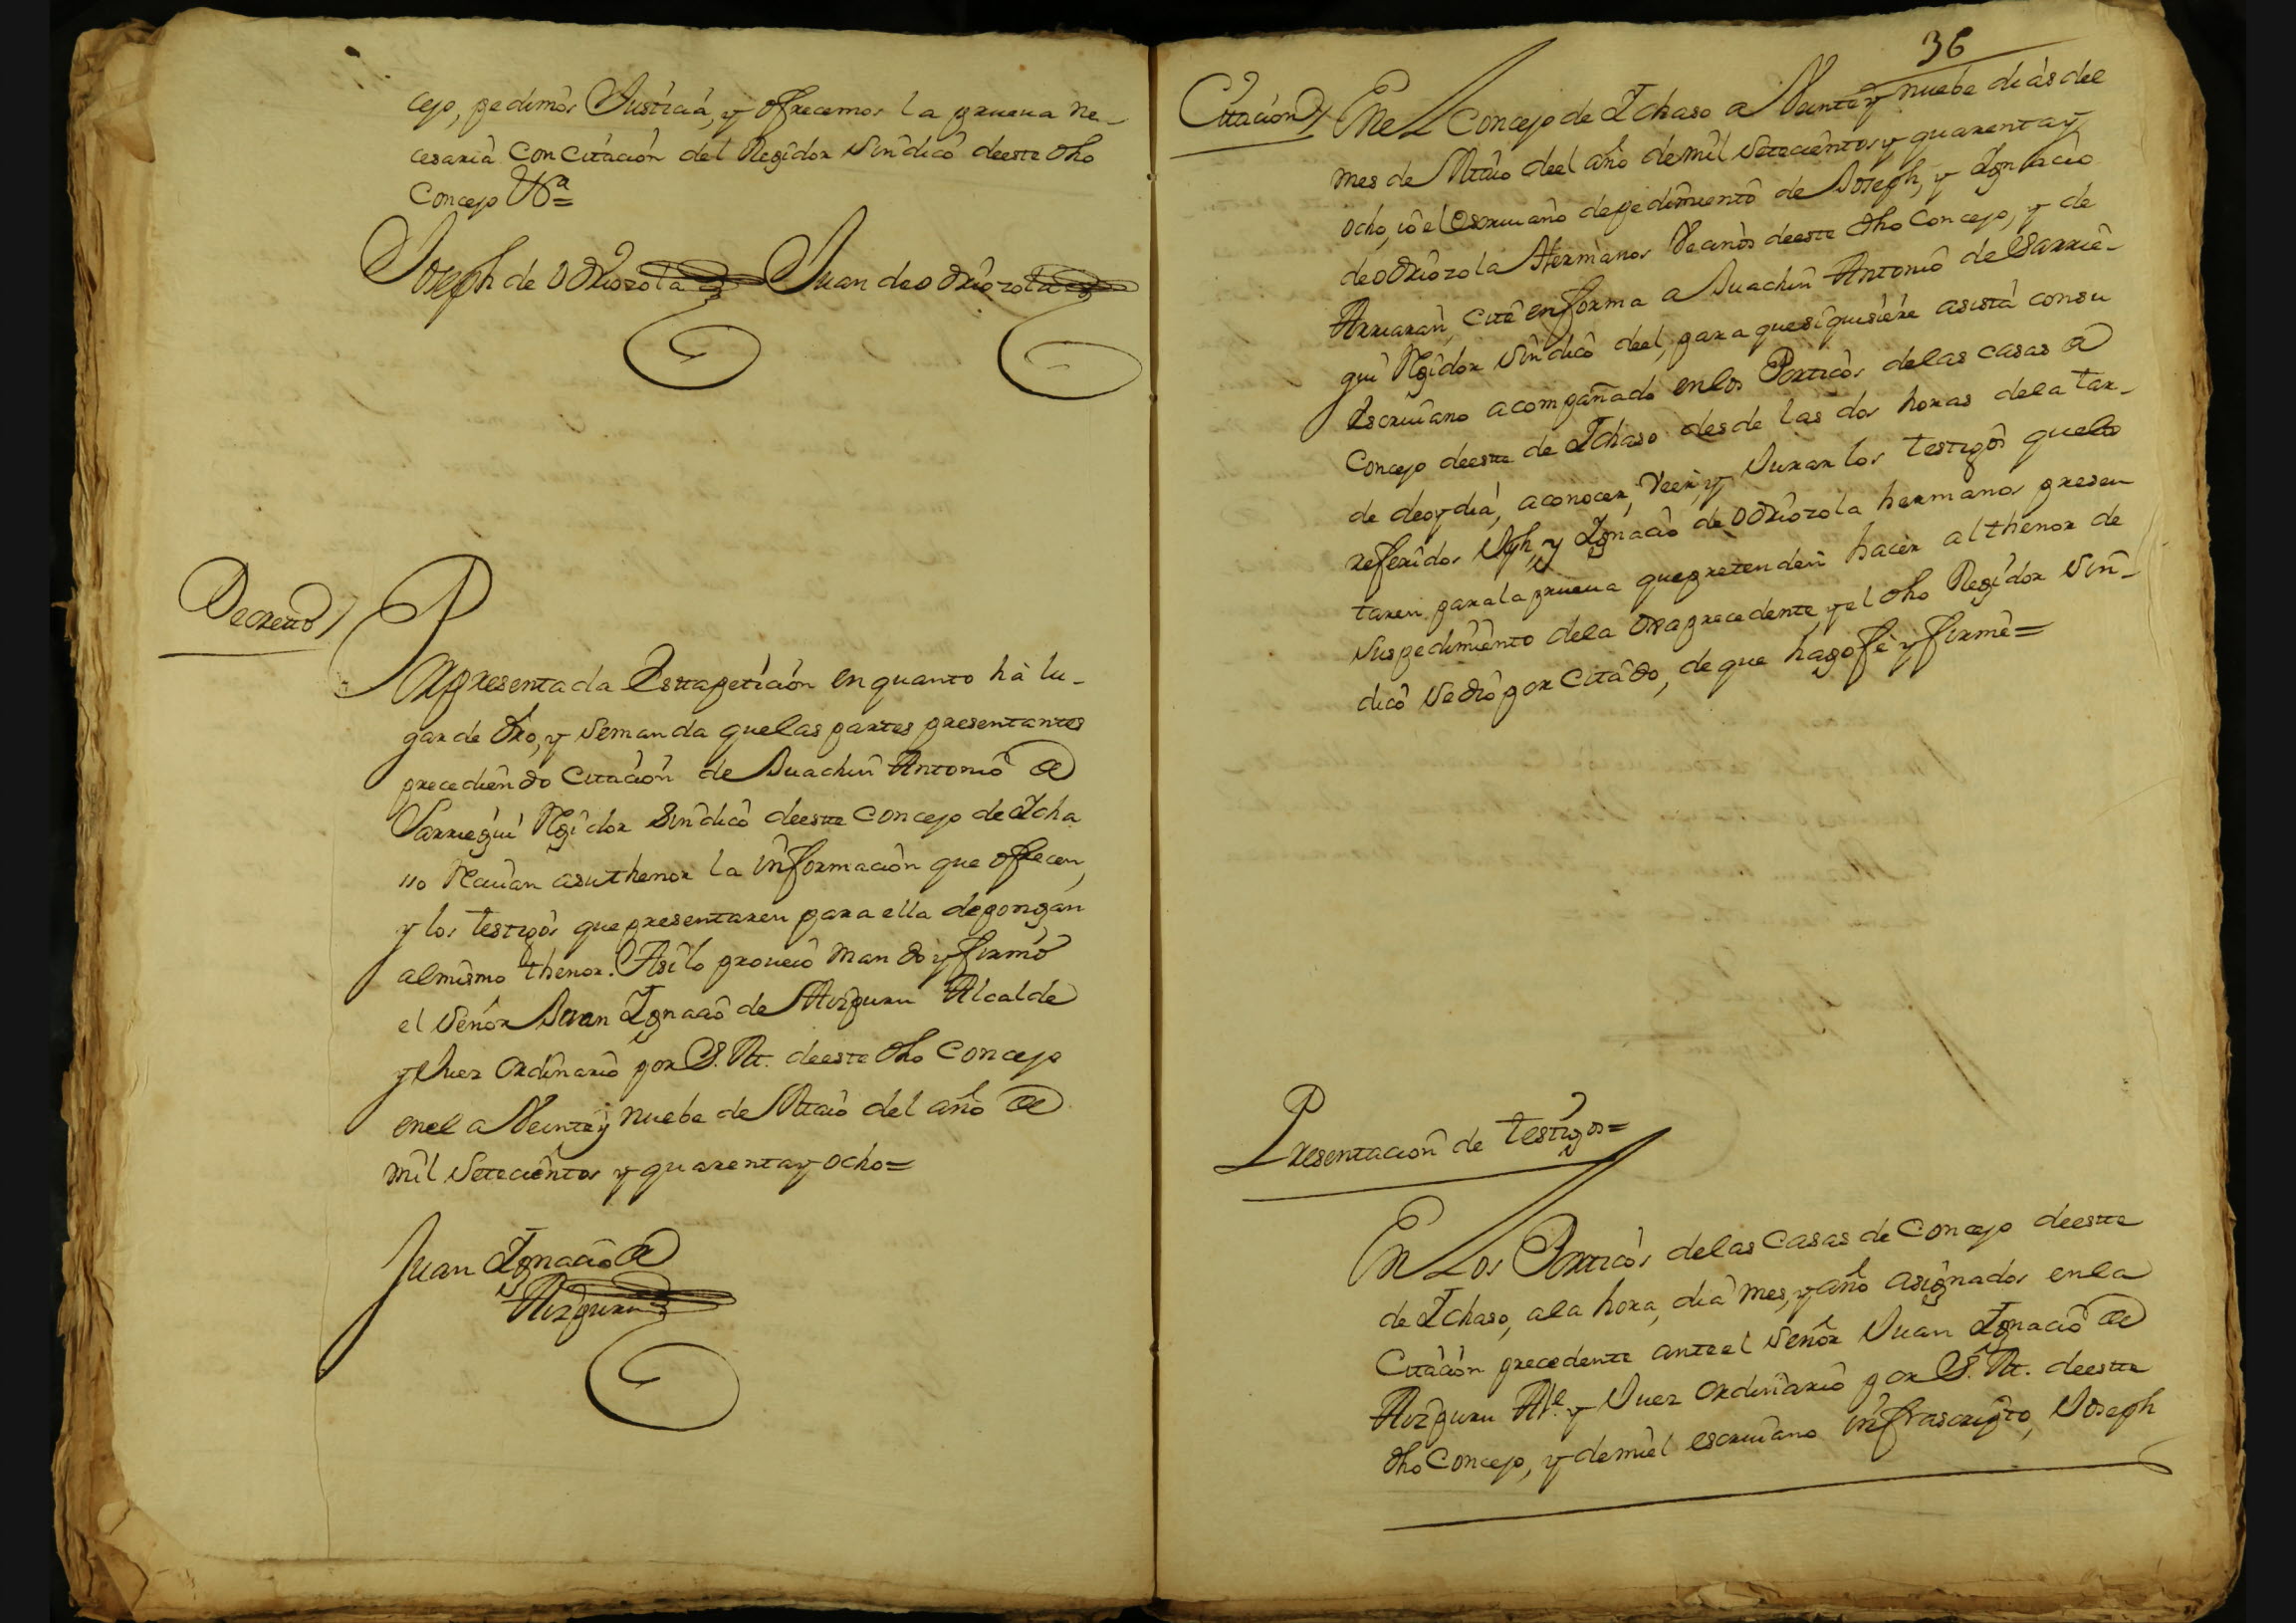 cejo, pedimos Justicia, y ofrecemos la prueua ne-
cesaria con citación del Regidor Sindico deeste dho
Concejo Vtª=
Joseph de Odriozola Juan de Odriozola
Decreto
Rpresentada Estapetición en quanto hà lu-
gar de dro, y Semanda quelas partes presentantes
precediendo Citación de Juachin Antonio de
Sarriegui Rgidor Sindico deeste Concejo de Icha
sso Reciuan asuthenor la informacion que ofrecen,
y los testigos que presentaren para ella depongan
almismo thenor. Asi lo proueio mando y firmó
el Señor Juan Ignacio de Aizpuru Alcalde
y Juez ordinario por S. M. deeste dho Concejo
enel a Veinte y nuebe de Maio del año de
mil Setecientos y quarenta y ocho=
Juan Ignacio de
Aizpuru
36
Citacion
Enel Concejo de Ichaso a Veinte y nuebe dias del
mes de Maio deel año demil Setecientos y quarenta y
ocho, io el Escriuano depedimiento de Joseph, y Ignacio
de Odriozola Hermanos Vecinos deeste dho Concejo, y de
Arriaran, cité enforma a Juachin Antonio de Sarrie-
gui Rgidor Sindico deel, para quesiquisiere asista consu
Escriuano acompañado enlos Porticos delas casas de
Concejo deeste de Ichaso desde las dos horas dela tar-
de deoydia, aconocer, Veer, y Jurar los testigos quelos
referidos Jph, y Ignacio de Odriozola hermanos presen
taren parala prueua quepretenden hacer althenor de
Supedimiento dela ora precedente, y el dho Regidor Sin-
dico Sedió por Citado, de que hago fé y firmé=
Presentacion de testigos=
En Los Porticos delas Casas de Concejo deeste
de Ichaso, ala hora, dia mes, y año asignados enla
Citación precedente anteel Señor Juan Ignacio de
Aizpuru Alе y Juez ordinario por S. M. deeste
dho Concejo, y demiel escriuano infrascripto, Joseph